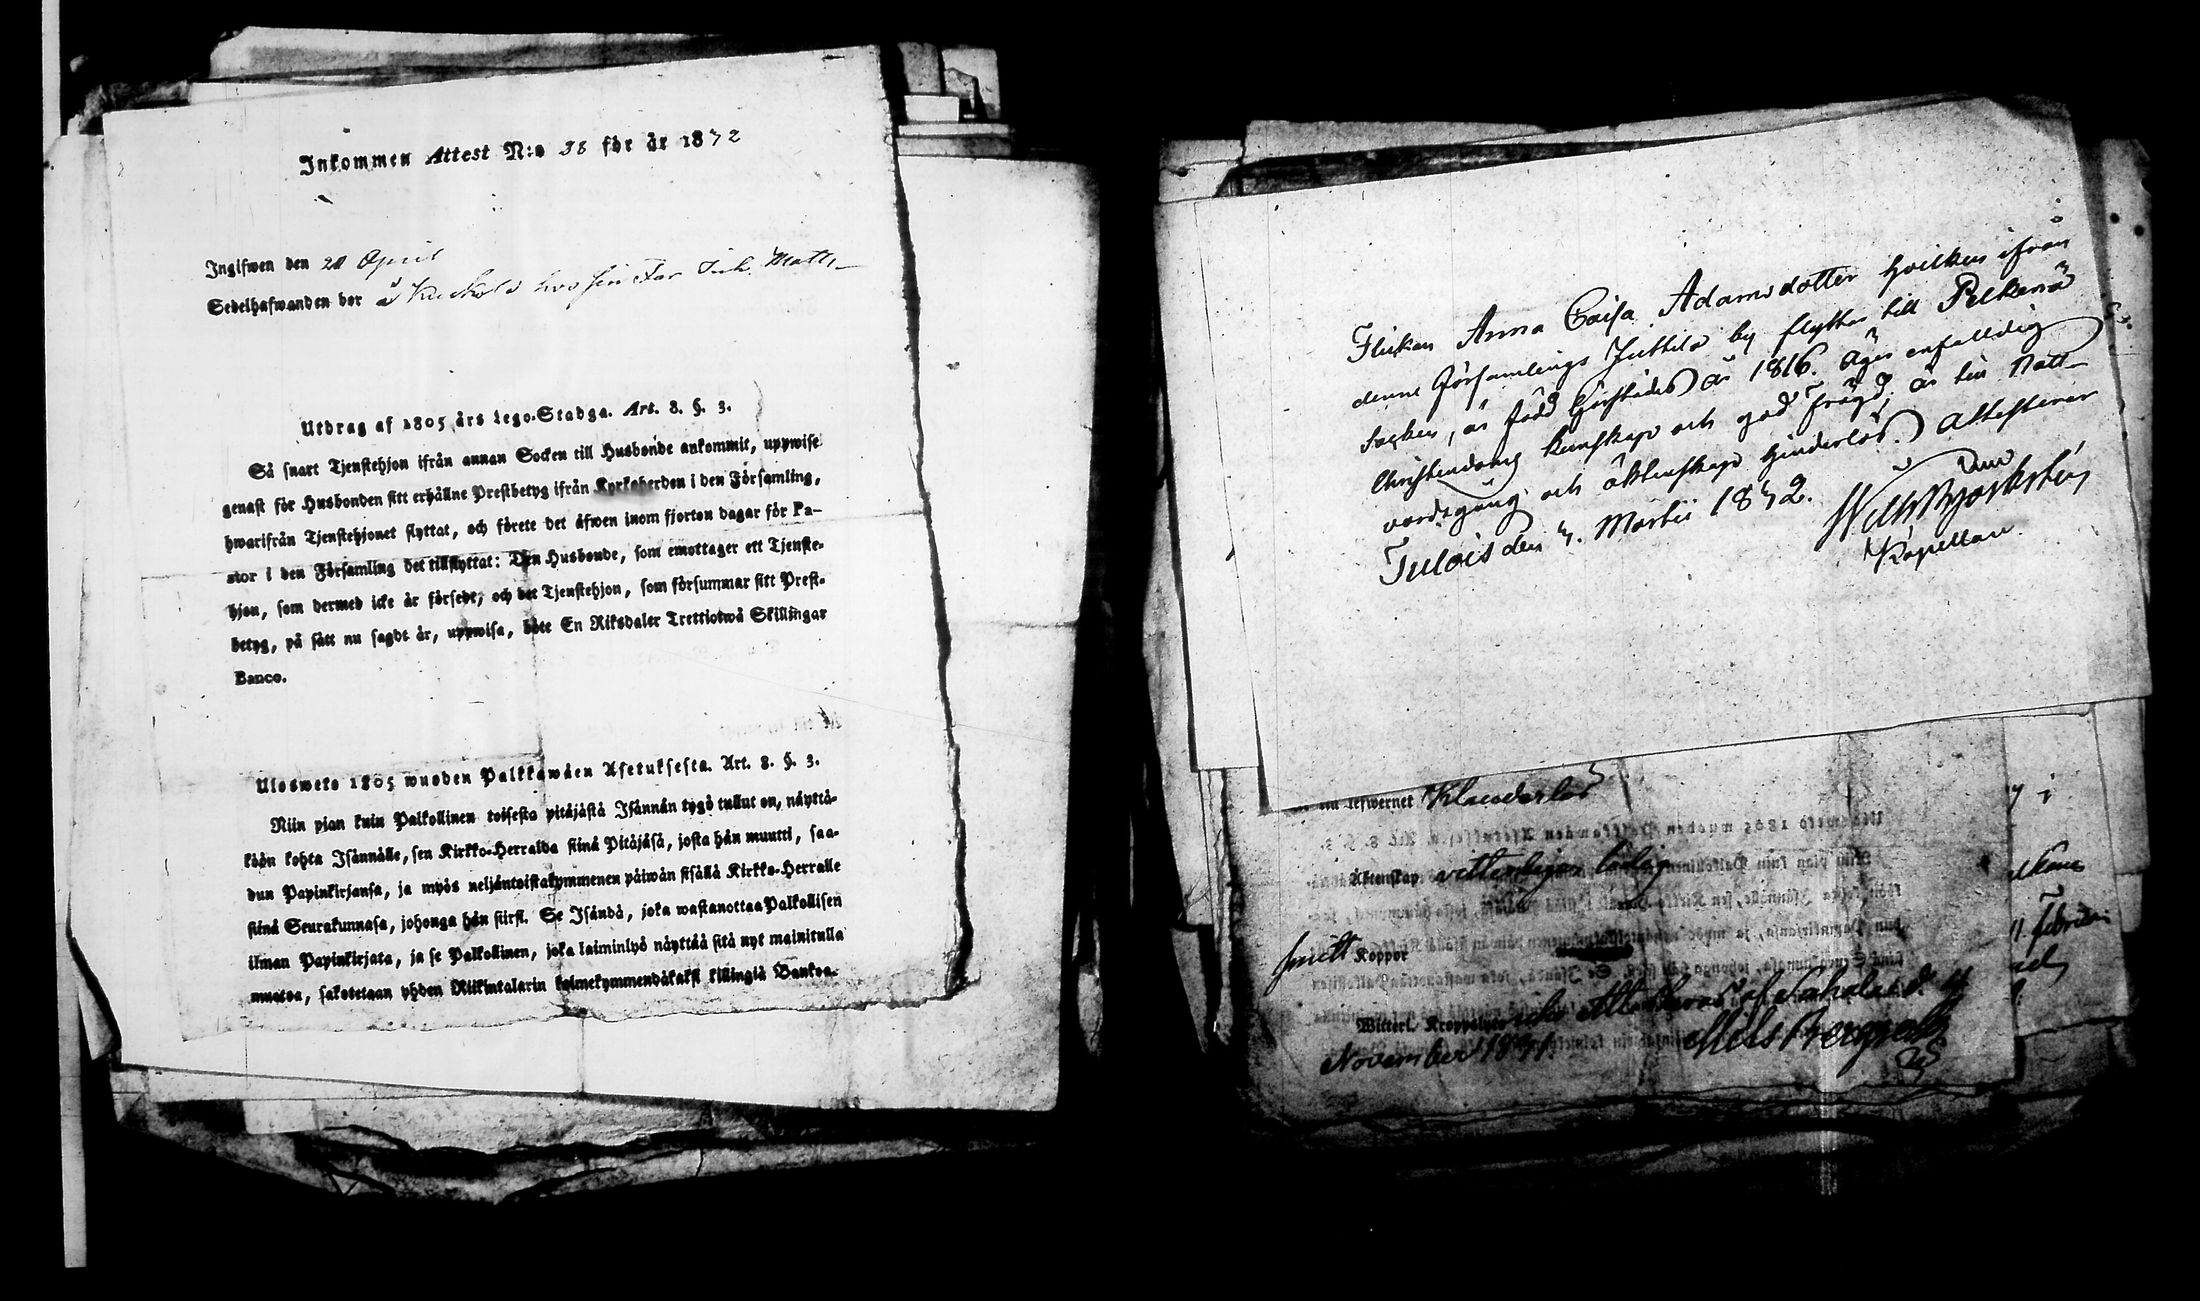 Inkommen Attest N:o 38 för år 1842
Ingifwen den 20 April
Sedelhafwanden bor å hos sin Far Inh. Matts
Utdrag af 1805 års Lego-Stadga. Art. 8. §. 3.
Så snart Tjenstehjon ifrån annan Socken till Husbonde ankommit, uppwise
genast för Husbonden sitt erhållne Prestbetyg ifrån Kyrkoherden i den Församling,
hwarifrån Tjenstehjonet flyttat, och förete det äfwen inom fjorton dagar för Pa-
stor i den Församling det tillflyttat: Den Husbonde, som emottager ett Tjenste-
hjon, som dermed icke är försedt, och det Tjenstehjon, som försummar sitt Prest-
betyg, på sätt nu sagdt är, uppwisa, böte En Riksdaler Trettiotwå Skillingar
Banco.
Ulosweto 1805 wuoden Palkkawäen Asetuksesta. Art. 8. §. 3.
Niin pian kuin Palkollinen toisesta pitäjästä Isännän tygö tullut on, näyttä-
köön kohta Isännälle, sen Kirkko-Herralda siinä Pitäjäsä, josta hän muutti, saa-
dun Papinkirjansa, ja myös neljäntoistakymmenen päiwän sisällä Kirkko-Herralle
siinä Seurakunnasa, johonga hän siirsi. Se Isändä, joka wastanottaa Palkollisen
ilman Papinkirjata, ja se Palkollinen, joka laiminlyö näyttää sitä nyt mainitulla
muotoa, sakotetaan yhden Riikintalarin kolmekymmendäkaksi killingiä Bankoa.
Flickan Anna Caisa Adamsdotter hvilken ifrån
denne Församlings Juttila by flyttar till Pelkenä
Socken, är född härstädes år 1816. Äger enfalldig
Christendoms kunskap och god frägd, är till Natt-
vardsgång och äktenskap hinderlös. Attesterar
Tulois den 7. Martii 1842.
Kapellan.
lefwernet Klanderlös
Äktenskap vitterligen ledig
7 i
11. Februari
haft Koppor
Witterl. Kroppslyte Attesteras af Sahalax d. 4
November 1841. Nils Bergroth